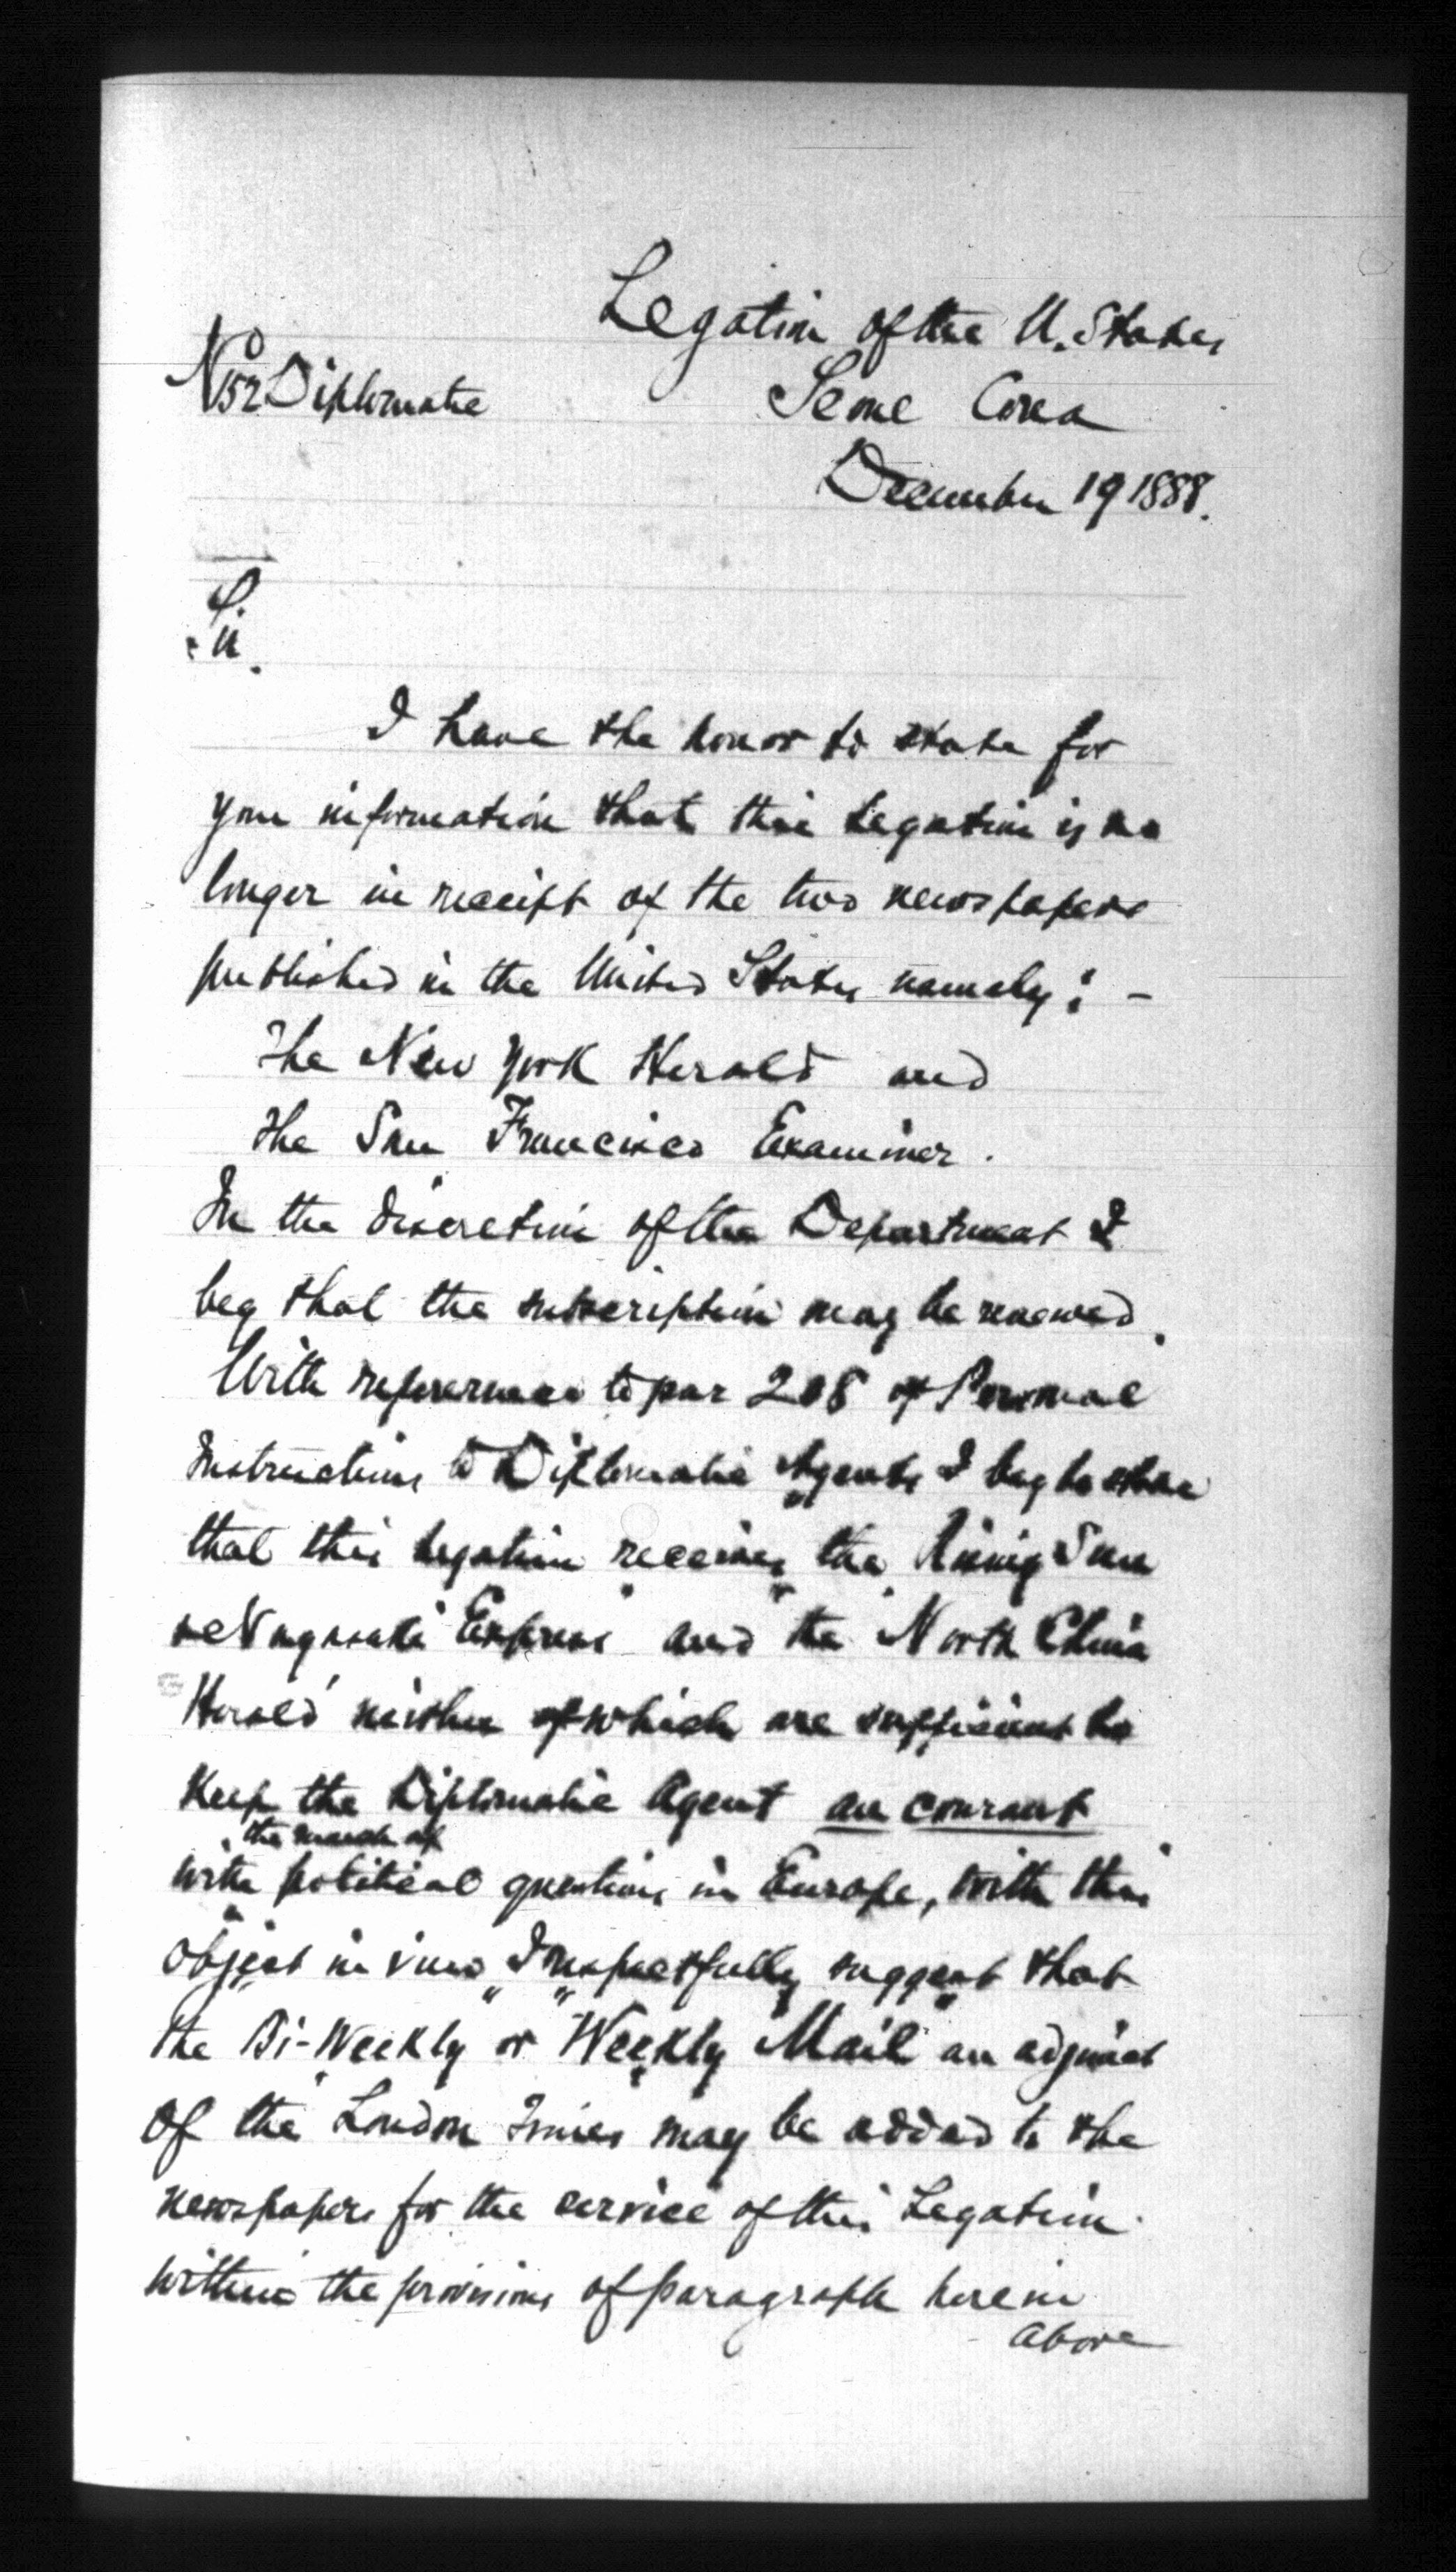 Legation of the U. States
No 152 Diplomatic
Seoul Corea
December 19 1888.
Sir.
I have the honor to state for
your information that this Legation is no
longer in receipt of the two newspapers
published in the United States namely: -
The New York Herald and
The San Francisco Examiner.
In the discretion of the Department I
beg that the subscription may be renewed.
With reference to par 208 of Personal
Instructions to Diplomatic Agents I beg to state
that this legation receives the "Rising Sun
Nagasaki Express" and the "North China
Herald" neither of which are sufficient to
keep the Diplomatic Agent au courant
the march of
with political questions in Europe, with this
object in view I respectfully suggest that
the "Bi-Weekly" or "Weekly Mail" an adjunct
of the "London Times" may be added to the
newspapers for the service of this Legation
within the provisions of paragraph herein
above